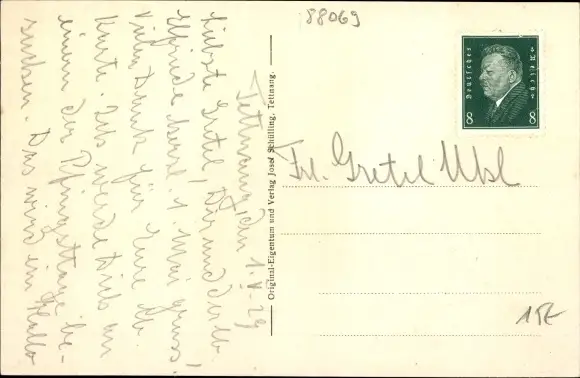 88069
Tettnang, den 1. V. 29
Liebste Gretel, Dir und Deiner
Elfriede herzl. 1. Mai gruss!
Vielen Dank für Eure lb.
Karte. Ich werde Dich an
einem der Pfingsttage be-
suchen. Das wird ein Hallo
Original-Eigentum und Verlag Josef Schilling, Tettnang.
Deutsches Reich
8 8
Frl. Gretel Ubl
15E